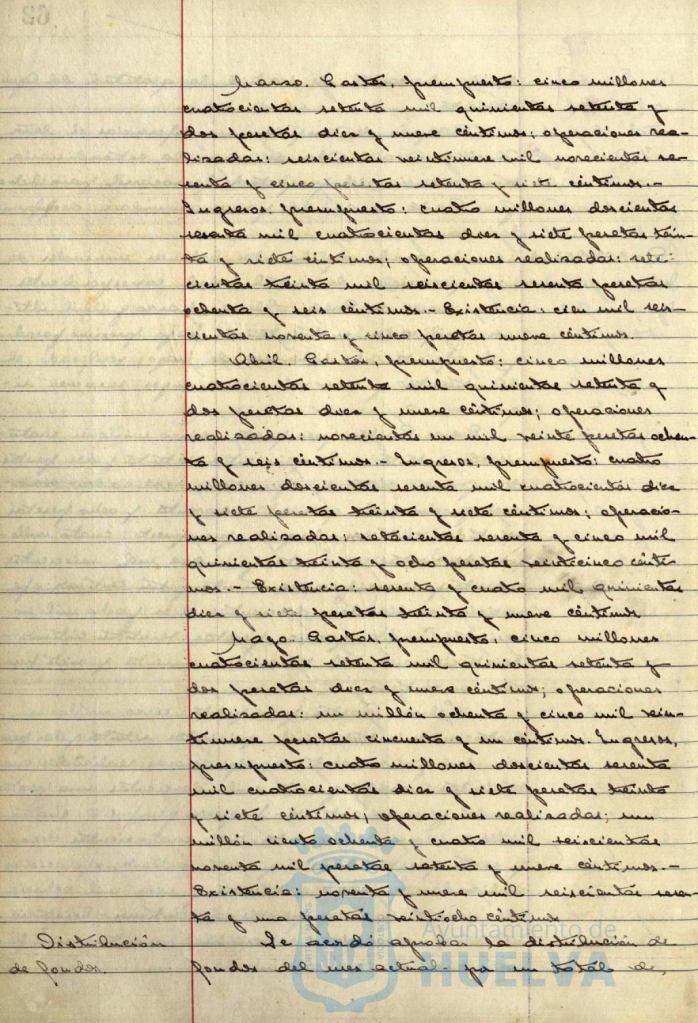 Marzo. Gastos, presupuesto: cinco millones
cuatrocientas setenta mil quinientas setenta y
dos pesetas diez y nueve céntimos; operaciones rea-
lizadas: seiscientas veintinueve mil novecientas se-
senta y cinco pesetas setenta y siete céntimos.-
Ingresos. presupuesto: cuatro millones doscientas
sesenta mil cuatrocientas diez y siete pesetas trein-
ta y siete céntimos; operaciones realizadas: sete-
cientas treinta mil seiscientas sesenta pesetas
ochenta y seis céntimos.- Existencia: cien mil seis-
cientas noventa y cinco pesetas nueve céntimos.
Abril. Gastos, presupuesto: cinco millones
cuatrocientas setenta mil quinientas setenta y
dos pesetas diez y nueve céntimos; operaciones
realizadas: novecientas un mil veinte pesetas ochen-
ta y seis céntimos.- Ingresos, presupuesto: cuatro
millones doscientas sesenta mil cuatrocientas diez
y siete pesetas treinta y siete céntimos; operacio-
nes realizadas: setecientas sesenta y cinco mil
quinientas treinta y ocho pesetas veinticinco cénti-
mos.- Existencia: sesenta y cuatro mil quinientas
diez y siete pesetas treinta y nueve céntimos
Mayo. Gastos, presupuesto: cinco millones
cuatrocientas setenta mil quinientas setenta y
dos pesetas diez y nueve céntimos; operaciones
realizadas: un millón ochenta y cinco mil vein-
tinueve pesetas cincuenta y un céntimos. Ingresos,
presupuesto: cuatro millones doscientas sesenta
mil cuatrocientas diez y siete pesetas treinta
y siete céntimos; operaciones realizadas: un
millón ciento ochenta y cuatro mil seiscientas
noventa mil pesetas setenta y nueve céntimos.-
Existencia: noventa y nueve mil seiscientas sesen-
ta y una pesetas veintiocho céntimos
Distribución
de fondos.
Se acordó aprobar la distribución de
fondos del mes actual por un total de,
Ayuntamiento de
HUELVA